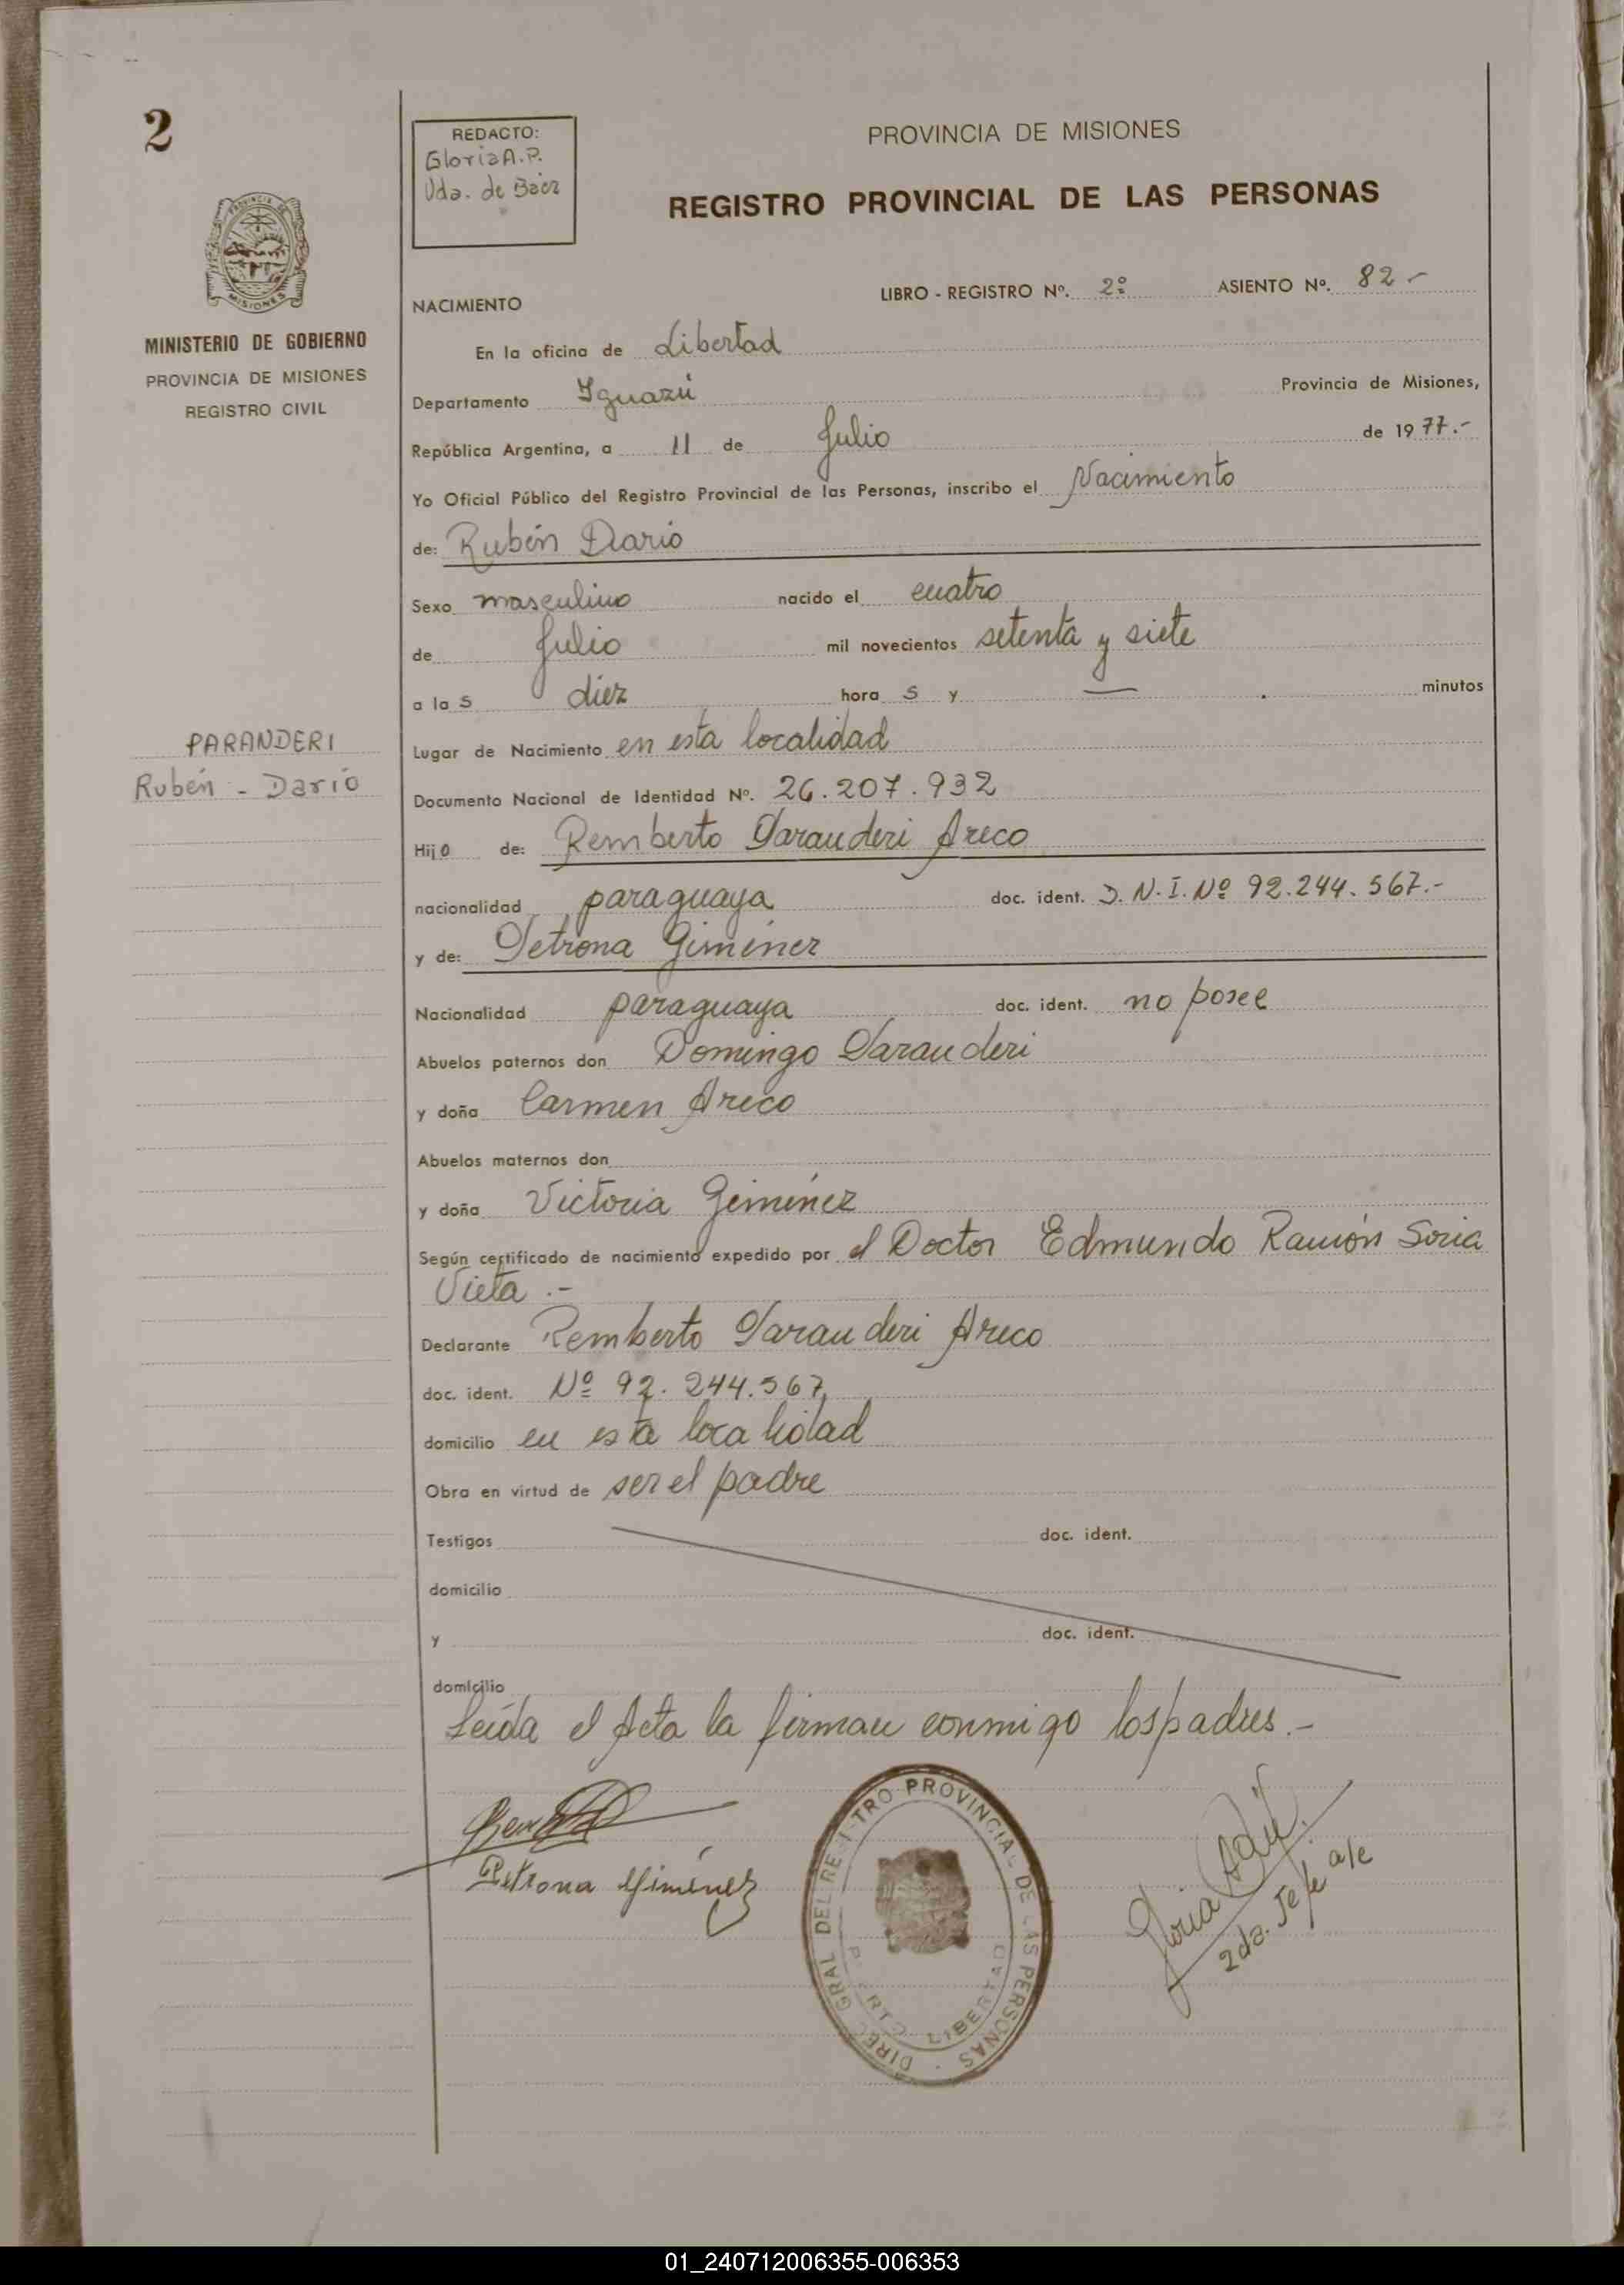 2
REDACTO:
Gloria A.P.
Vda. de Báez
PROVINCIA DE MISIONES
REGISTRO PROVINCIAL DE LAS PERSONAS
MINISTERIO DE GOBIERNO
PROVINCIA DE MISIONES
REGISTRO CIVIL
NACIMIENTO
LIBRO - REGISTRO Nº. 2º ASIENTO Nº. 82.-
En la oficina de Libertad
Departamento Iguazú Provincia de Misiones,
República Argentina, a 11 de Julio de 1977.-
Yo Oficial Público del Registro Provincial de las Personas, inscribo el Nacimiento
de: Rubén Dario
Sexo masculino nacido el cuatro
de Julio mil novecientos setenta y siete
a las diez horas y — minutos
PARANDERI
Rubén - Darío
Lugar de Nacimiento en esta localidad
Documento Nacional de Identidad Nº. 26.207.932
Hijo de: Remberto Paranderi Areco
nacionalidad paraguaya doc. ident. D.N.I. Nº 92.244.567.-
y de: Petrona Giménez
Nacionalidad paraguaya doc. ident. no posee
Abuelos paternos don Domingo Paranderi
y doña Carmen Areco
Abuelos maternos don
y doña Victoria Giménez
Según certificado de nacimiento expedido por el Doctor Edmundo Ramón Soria
Vieta.-
Declarante Remberto Paranderi Areco
doc. ident. Nº 92.244.567,
domicilio en esta localidad
Obra en virtud de ser el padre
Testigos doc. ident.
domicilio
y doc. ident.
domicilio
Leída el Acta la firman conmigo los padres.-
Petrona Giménez
DIREC GRAL DEL REGISTRO PROVINCIAL DE LAS PERSONAS
PUERTO LIBERTAD
Gloria
2da. Jefe a/c
01_240712006355-006353